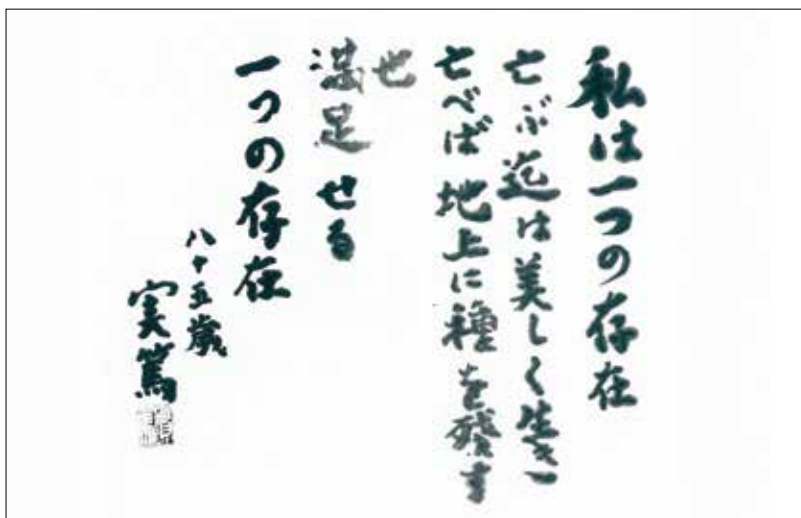 私は一つの存在
亡ぶ迄は美しく生き
亡べば地上に種を残す
也
満足せる
一つの存在
八十五歳
実篤